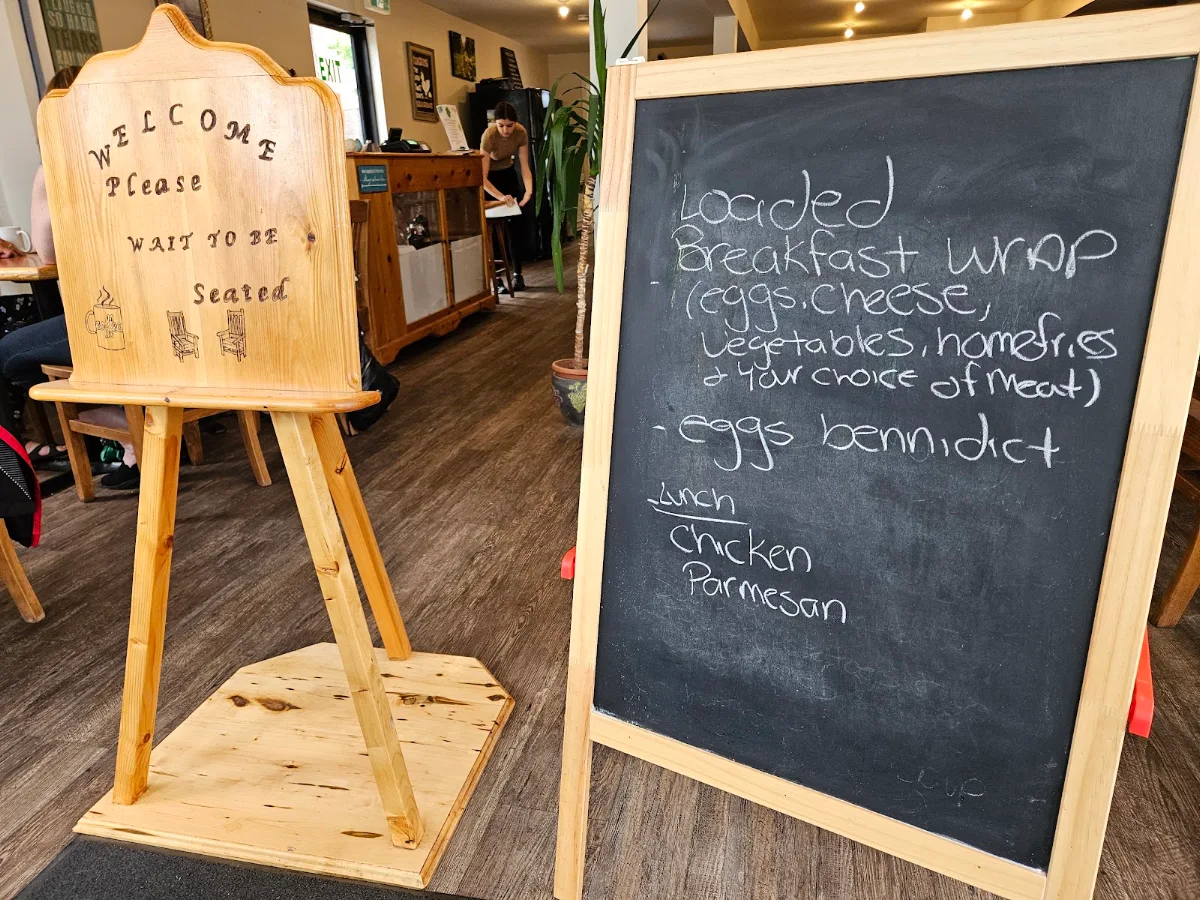 WELCOME
Please
WAIT TO BE
Seated
EXIT
Loaded
Breakfast wrap
(eggs, cheese,
vegetables, homefries
& your choice of meat)
- eggs bennidict
- Lunch
Chicken
Parmesan